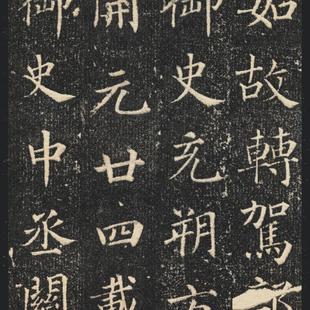 如故轉駕部
御史充朔方
開元廿四載
御史中丞關